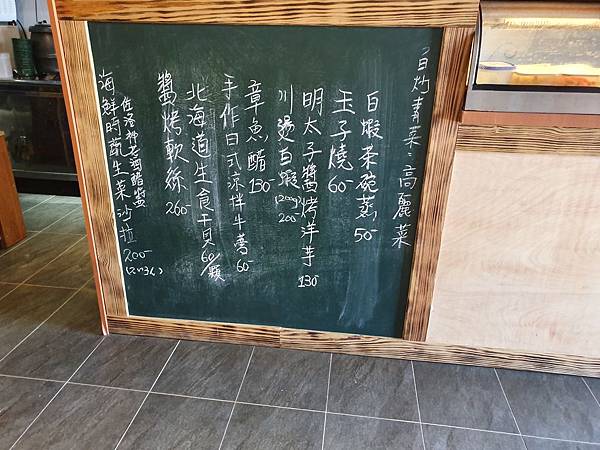 白灼青菜：高麗菜
白蝦茶碗蒸 50-
玉子燒 60-
明太子醬烤洋芋 130-
川燙白蝦 (200g) 200-
章魚醋 150-
手作日式涼拌牛蒡 60-
北海道生食干貝 60/顆
醬烤軟絲 260-
佐洛神花油醋醬
海鮮時蔬生菜沙拉 200- (2~3人)